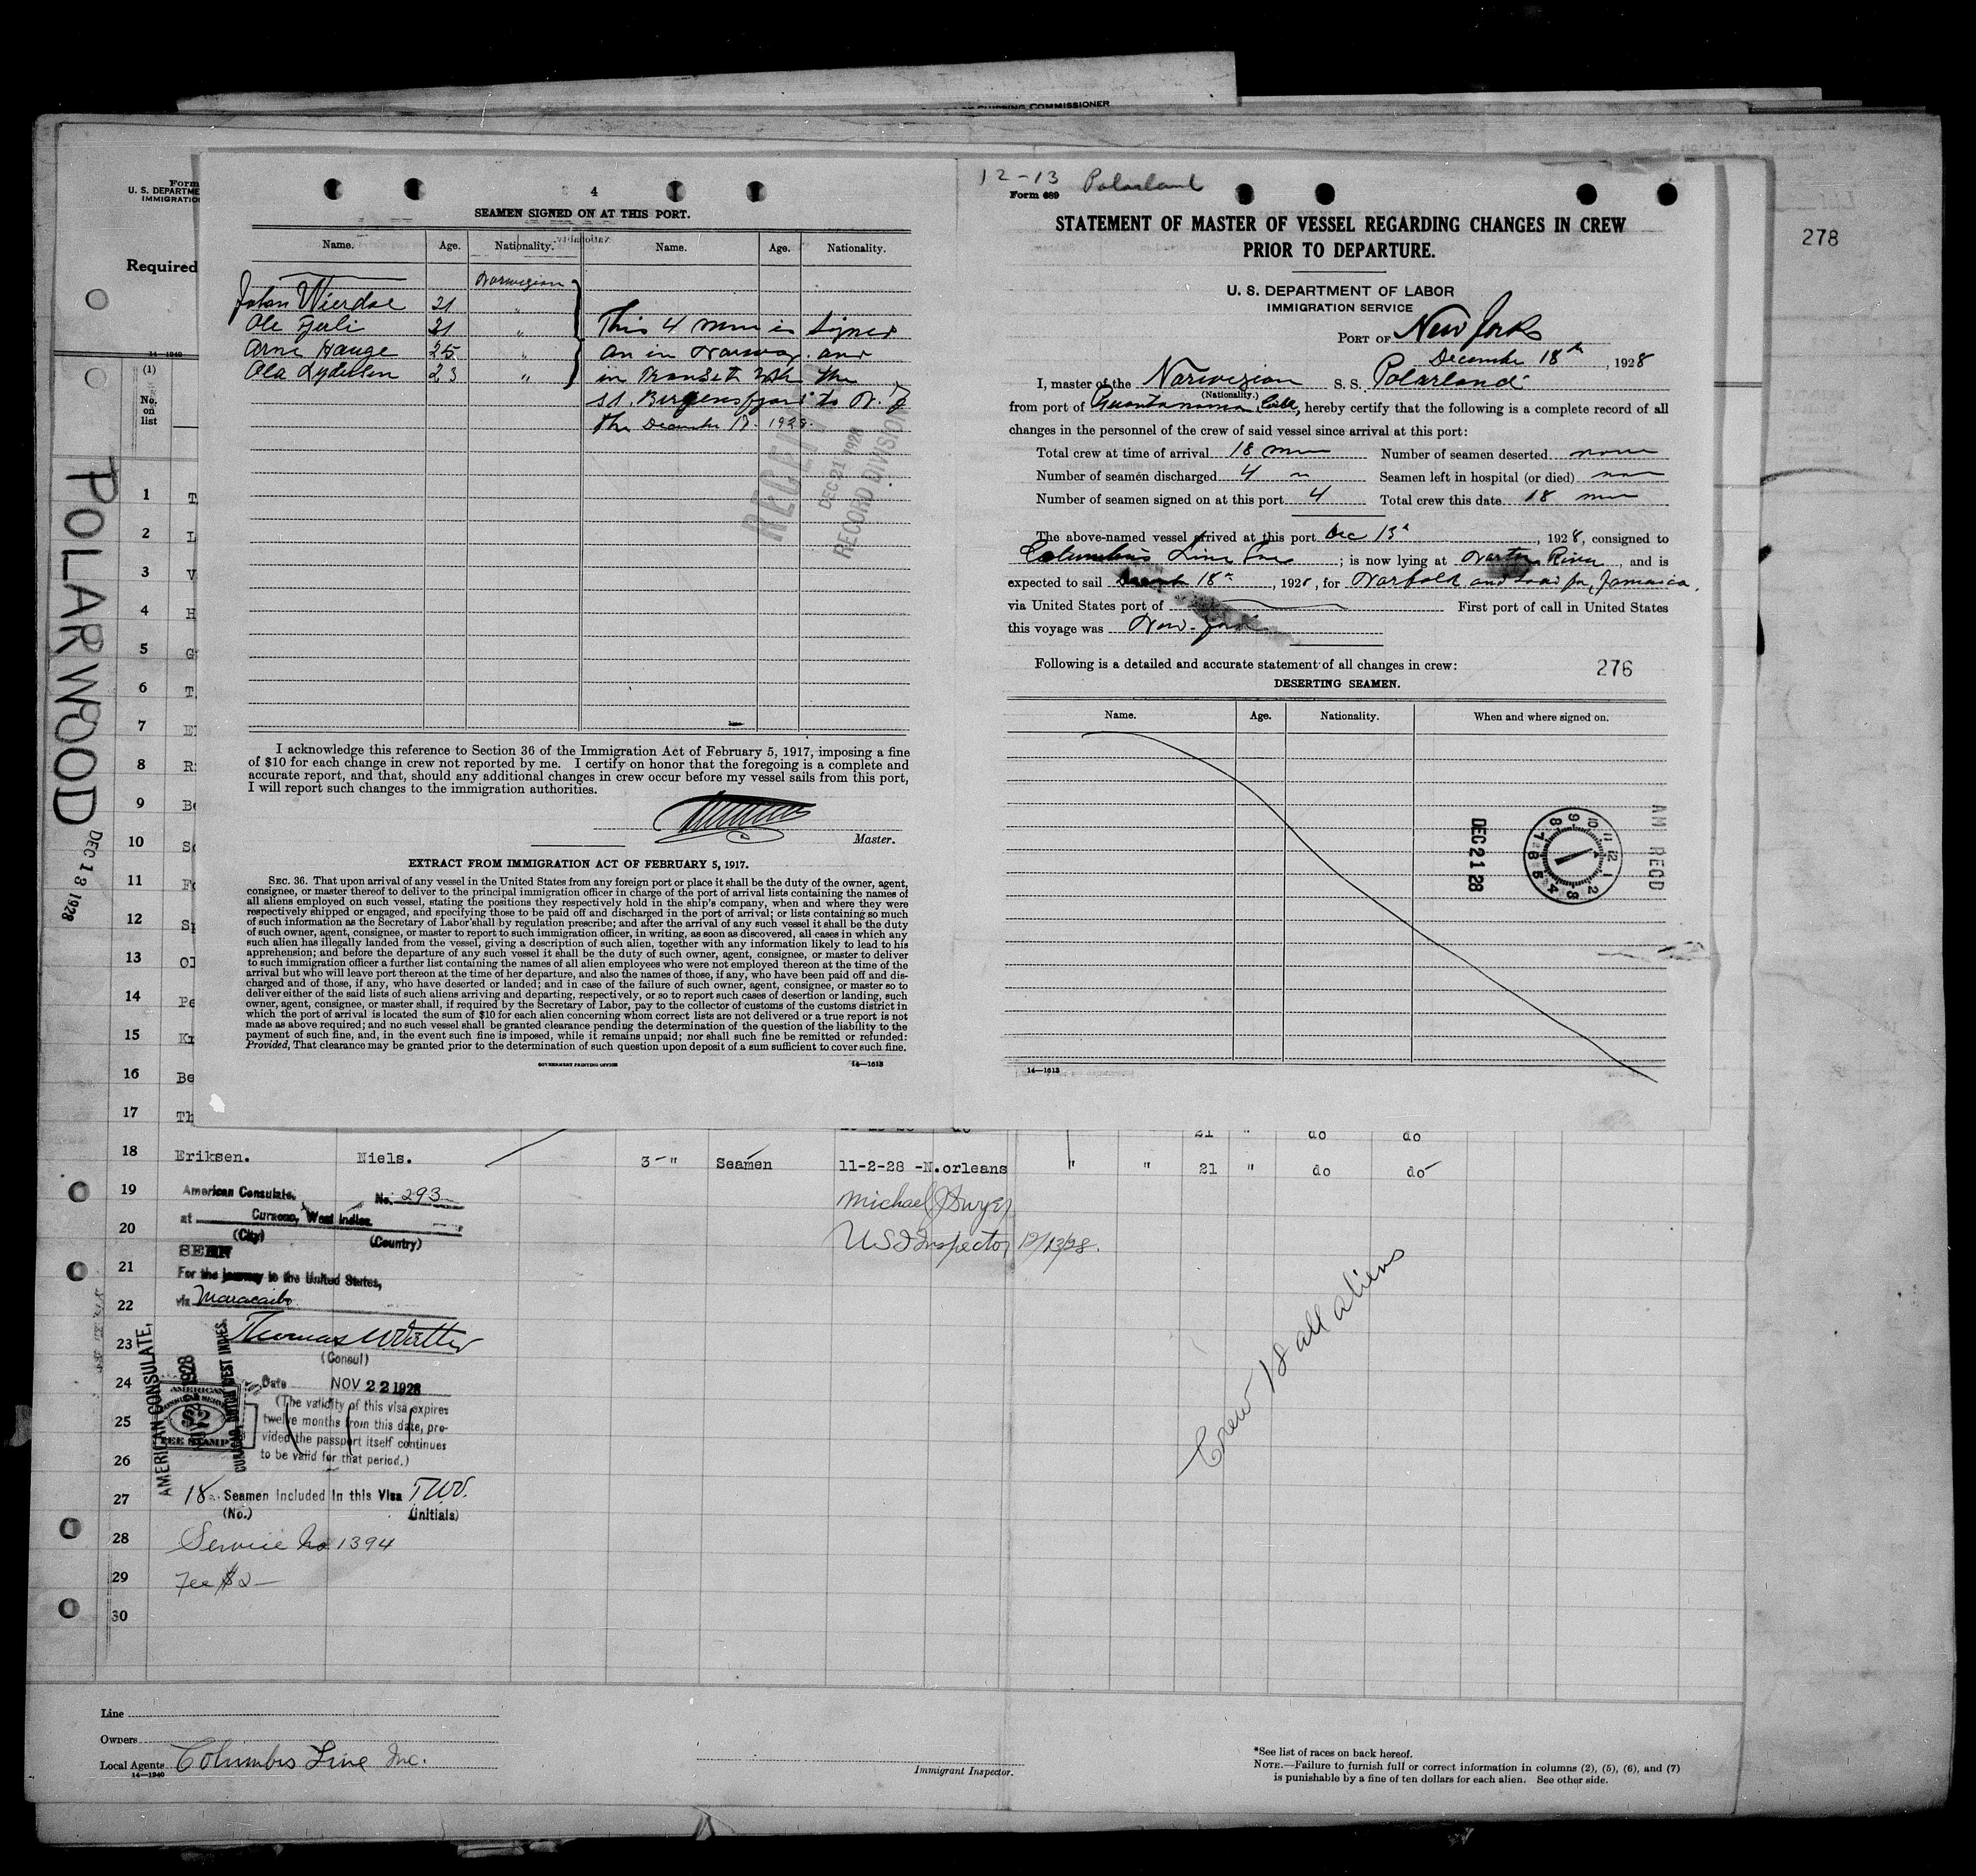 OF SHIPPING COMMISSIONER
Form
U. S. DEPARTME
IMMIGRATIO
Required
14—1940
(1)
No.
on
list
POLARWOOD
DEC 18 1928
278
4
SEAMEN SIGNED ON AT THIS PORT.
Name. Age. Nationality. Name. Age. Nationality.
Norwegian
John 21 "
Ole 21 " This 4 men is signed
Arne Hauge 25 " on in Norway. and
Ola Lydersen 23 " in Transit with the
ss. Bergensfjord to N. Y
the December 1928.
RECEIVED
DEC 21 1928
RECORD DIVISION
I acknowledge this reference to Section 36 of the Immigration Act of February 5, 1917, imposing a fine
of $10 for each change in crew not reported by me. I certify on honor that the foregoing is a complete and
accurate report, and that, should any additional changes in crew occur before my vessel sails from this port,
I will report such changes to the immigration authorities.
Master.
EXTRACT FROM IMMIGRATION ACT OF FEBRUARY 5, 1917.
SEC. 36. That upon arrival of any vessel in the United States from any foreign port or place it shall be the duty of the owner, agent,
consignee, or master thereof to deliver to the principal immigration officer in charge of the port of arrival lists containing the names of
all aliens employed on such vessel, stating the positions they respectively hold in the ship's company, when and where they were
respectively shipped or engaged, and specifying those to be paid off and discharged in the port of arrival; or lists containing so much
of such information as the Secretary of Labor shall by regulation prescribe; and after the arrival of any such vessel it shall be the duty
of such owner, agent, consignee, or master to report to such immigration officer, in writing, as soon as discovered, all cases in which any
such alien has illegally landed from the vessel, giving a description of such alien, together with any information likely to lead to his
apprehension; and before the departure of any such vessel it shall be the duty of such owner, agent, consignee, or master to deliver
to such immigration officer a further list containing the names of all alien employees who were not employed thereon at the time of the
arrival but who will leave port thereon at the time of her departure, and also the names of those, if any, who have been paid off and dis-
charged and of those, if any, who have deserted or landed; and in case of the failure of such owner, agent, consignee, or master so to
deliver either of the said lists of such aliens arriving and departing, respectively, or so to report such cases of desertion or landing, such
owner, agent, consignee, or master shall, if required by the Secretary of Labor, pay to the collector of customs of the customs district in
which the port of arrival is located the sum of $10 for each alien concerning whom correct lists are not delivered or a true report is not
made as above required; and no such vessel shall be granted clearance pending the determination of the question of the liability to the
payment of such fine, and, in the event such fine is imposed, while it remains unpaid; nor shall such fine be remitted or refunded:
Provided, That clearance may be granted prior to the determination of such question upon deposit of a sum sufficient to cover such fine.
GOVERNMENT PRINTING OFFICE 14—1613
12-13 Polarland
Form 689
STATEMENT OF MASTER OF VESSEL REGARDING CHANGES IN CREW
PRIOR TO DEPARTURE.
U. S. DEPARTMENT OF LABOR
IMMIGRATION SERVICE
PORT OF New York
December 18th, 1928
I, master of the Norwegian S. S. Polarland
(Nationality.)
from port of Guantanamo, Cuba, hereby certify that the following is a complete record of all
changes in the personnel of the crew of said vessel since arrival at this port:
Total crew at time of arrival 18 men Number of seamen deserted none
Number of seamen discharged 4 Seamen left in hospital (or died) non
Number of seamen signed on at this port 4 Total crew this date 18 men
The above-named vessel arrived at this port Dec 13th, 1928, consigned to
Columbus Line Inc; is now lying at River, and is
expected to sail 18th, 1928, for Norfolk and load for Jamaica.
via United States port of First port of call in United States
this voyage was New-York
Following is a detailed and accurate statement of all changes in crew: 276
DESERTING SEAMEN.
Name. Age. Nationality. When and where signed on.
DEC 21 28
AM RECD
12 1 2 3 4 5 6 7 8 9 10 11
14—1613
1 T
2 L
3 V
4 H
5 G
6 T
7 E
8 R
9 Be
10 So
11 Fo
12 Sp
13 Ol
14 Pe
15 Kr
16 Be
17 Th 21 " do do
18 Eriksen. Niels. 3-" Seamen 11-2-28 -N.orleans " " 21 " do do
19
20
21
22
23
24
25
26
27
28
29
30
American Consulate, No. 293
at Curacao, West Indies.
(City) (Country)
SEEN
For the journey to the United States,
via Maracaibo
(Consul)
Date NOV 22 1928
(The validity of this visa expires
twelve months from this date, pro-
vided the passport itself continues
to be valid for that period.)
AMERICAN CONSULATE,
CURACAO, DUTCH WEST INDIES.
AMERICAN
$2
FEE STAMP
18 Seamen included in this Visa T.W.V.
(No.) (Initials)
Service No 1394
Fee $2—
Michael J Dwyer
US Inspector 12/13/28.
Crew 18 all aliens
Line
Owners
Local Agents Columbus Line Inc.
14—1940
Immigrant Inspector.
*See list of races on back hereof.
NOTE.—Failure to furnish full or correct information in columns (2), (5), (6), and (7)
is punishable by a fine of ten dollars for each alien. See other side.